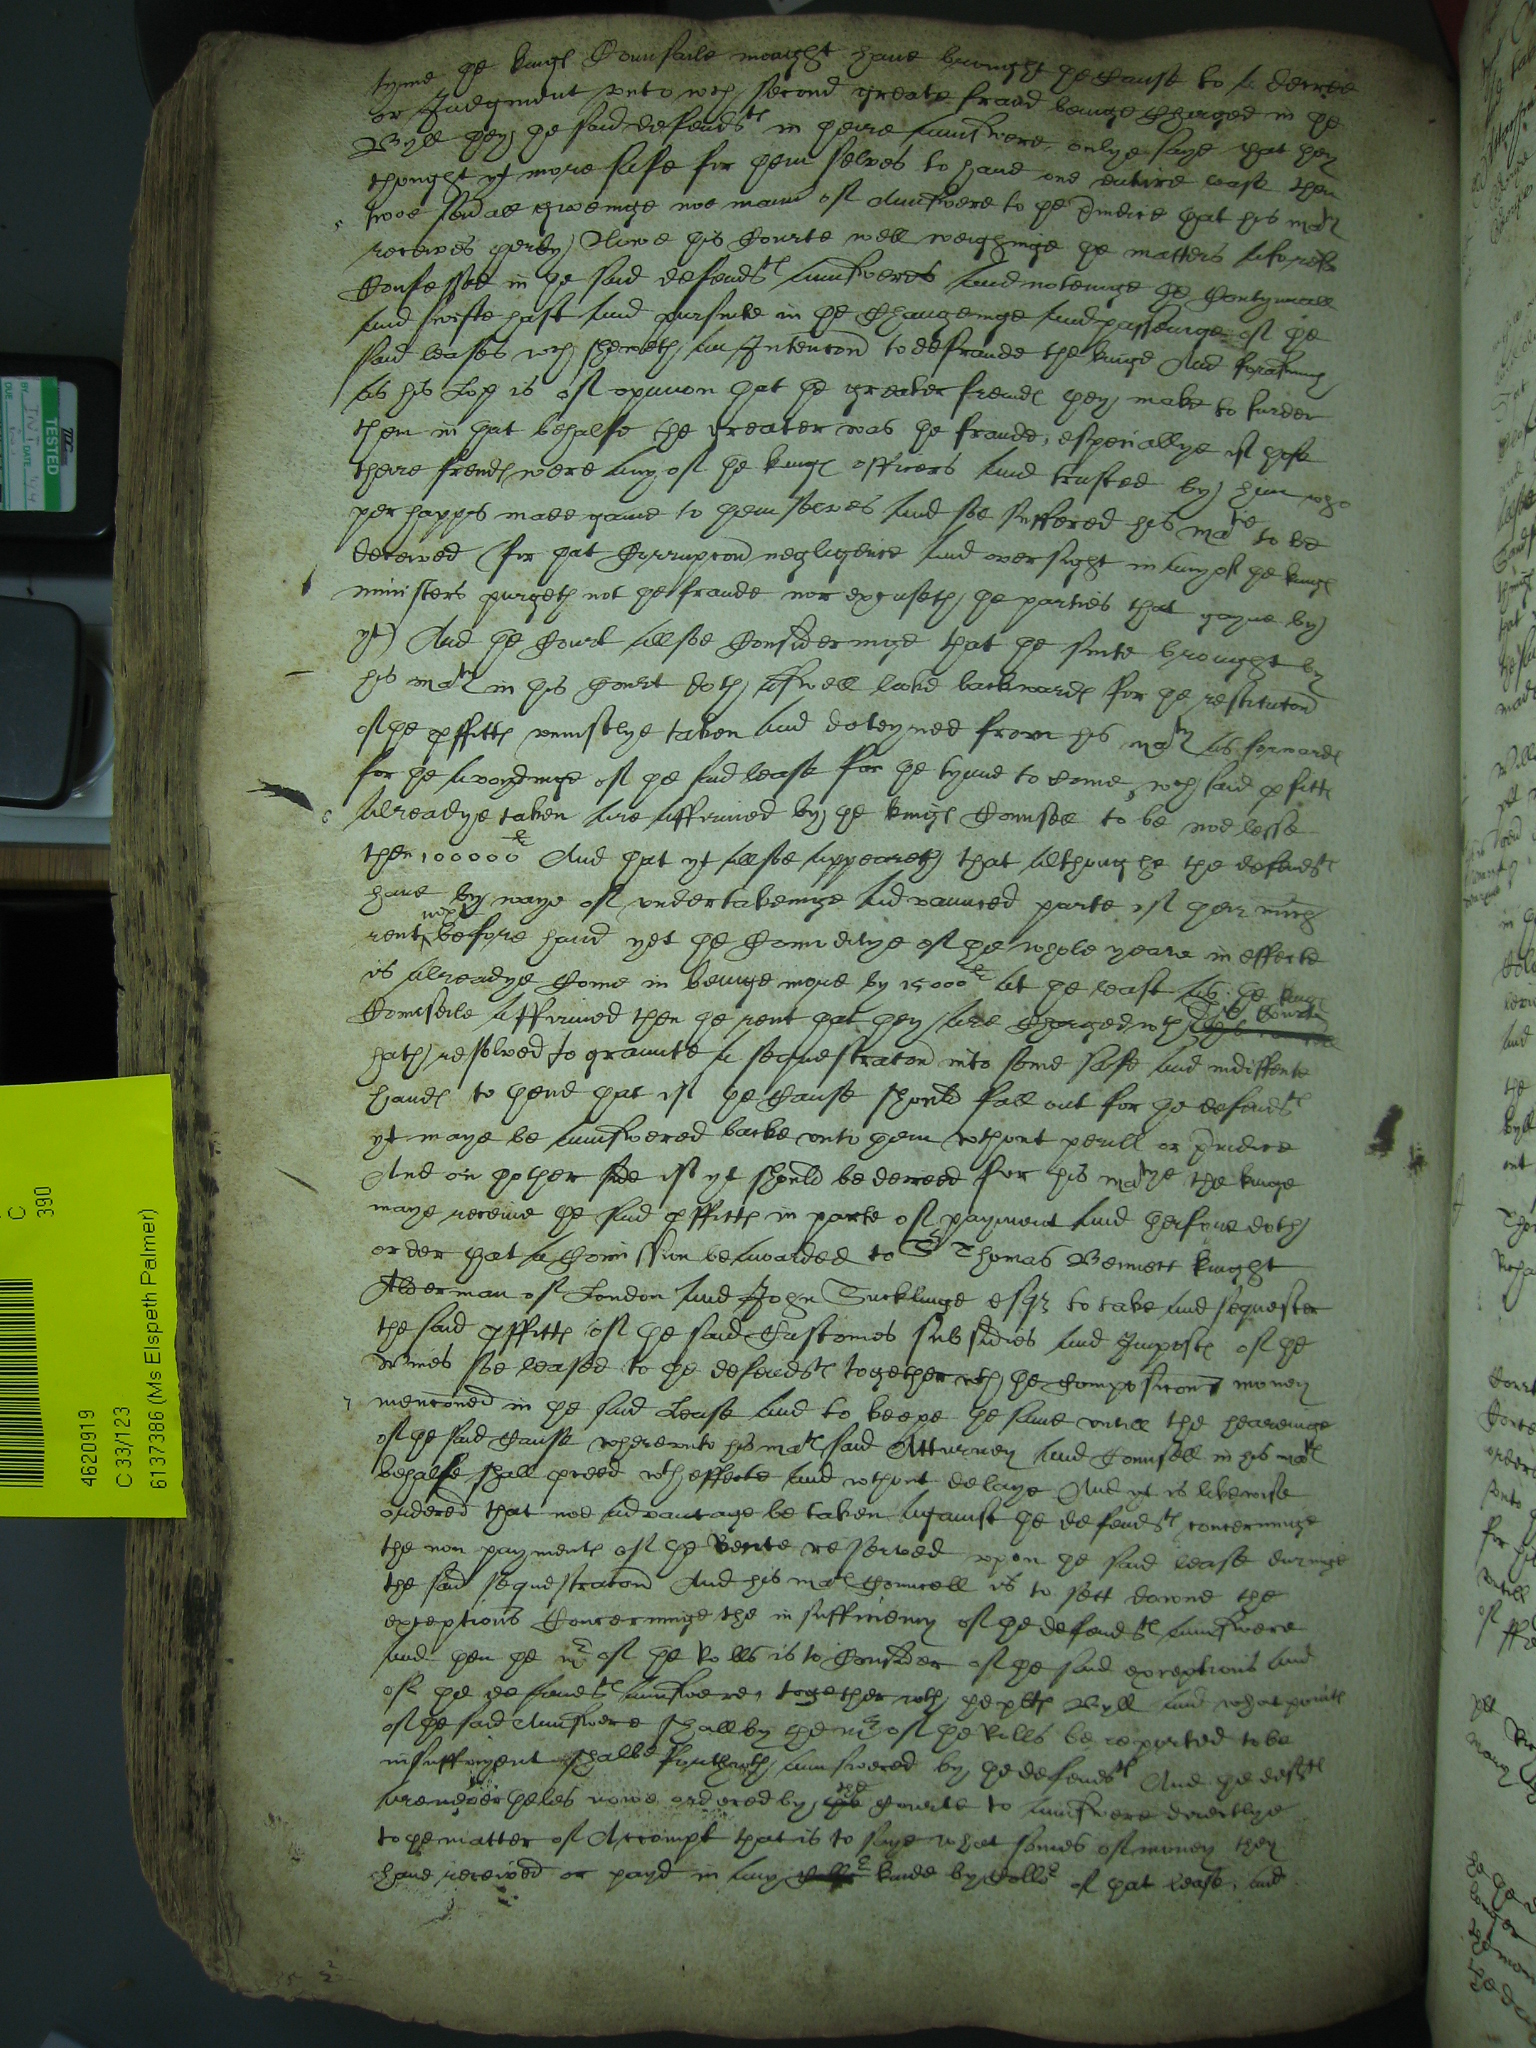 tyme ye kings Counsaile mought have brought ye Cause to a decree
or Judgment unto wch second greate fraud beinge Charged in ye
Byll yey ye said defendts in yeire Aunswere onlye saye that yey
thought yt more safe for yem selves to have one entire lease then
5
twoe severall giveinge noe maner of Aunswere to ye preiudice yat his matie
receives yerby Nowe this Courte well weighinge ye matters aforesd
Confessed in ye said defendts Aunsweres And noteinge ye Contynuall
and swifte hast And pursuite in ye Changeinge And passinge of ye
said leases wch sheweth an Intencon to defraude the kinge And forasmuch
as his Lop is of opinion yat ye greater frends yey make to furder
them in yat behalfe the greater was ye fraude, especiallye if those
theire frends were any of ye kings officers And trusted by him who
perhapps made gaine to yem selves And soe suffered his matie to be
deceived (for yat Corrupcon negligence And oversight in any of ye kings
ministers purgeth not ye fraude nor excuseth ye parties that gayne by
yt) And ye Court allsoe Consideringe that ye suite brought by
his matie in this Court doth aswell looke backwards for ye restitucon
of ye pffitts uniustlye taken And deteyned from his matie as forwards
for ye avoydinge of ye said lease for ye tyme to come, wch said pfitts
6
Alreadye taken are affirmed by ye kings Counsell to be noe lesse
then 100000li And yat yt allsoe Appeareth that althoughe the defendts
have by waye of undertakeinge Advaunced parte of yeir
rent before hand yet ye Comoditye of ye whole yeare in effecte
is alreadye Come in beinge more by 15000li At ye least As ye kings
Counsaile affirmed then ye rent yat yey are Charged wth this Courte
hath resolved to graunte a sequestracon into some safe And indifferente
hands to yend yat if ye Cause should fall out for ye defendts
yt maye be Aunswered backe unto yem wthout perill or preiudice
And on yother side if yt should be decreed for his matye the kinge
maye receive ye said pffitts in parte of payment And therfore doth
order yat a Comission be Awarded to Sr Thomas Bennett knight
Alderman of London And John Sucklinge esqr to take And sequester
the said pffitts of ye said Customes subsidies And Imposts of ye
Wines soe leased to ye defendts together wth ye Composicon money
7
mencioned in ye said Lease And to keepe ye same untill the heareinge
of ye said Cause whereunto his mats said Atturney And Counsell in his mats
behalfe shall pceed wth effecte And wthout delaye And yt is likewise
ordered that noe advantage be taken Against ye defendts concerninge
the non payments of ye Rente reserved upon ye said lease duringe
the said sequestracon And his mats Councell is to sett downe the
exceptions Concerninge the insufficiency of ye defendts Aunswere
and yen ye mr of ye Rolls is to Consider of ye said exceptions And
of ye defendts Aunswere, together wth ye plts Byll And what points
of ye said Aunswere shall by the mr of ye Rolls be reported to be
insufficyent shalbe forthwth Aunswered by ye defendts And ye defts
are neverthelesse nowe ordered by the Courte to Aunswere directlye
to ye matter of Accompt that is to saye what somes of money they
have received or payd in any kinde by Collor of yat lease, And
TESTED
BY
INT
DATE
DUE
C
390
4620919
C 33/123
6137386 (Ms Elspeth Palmer)